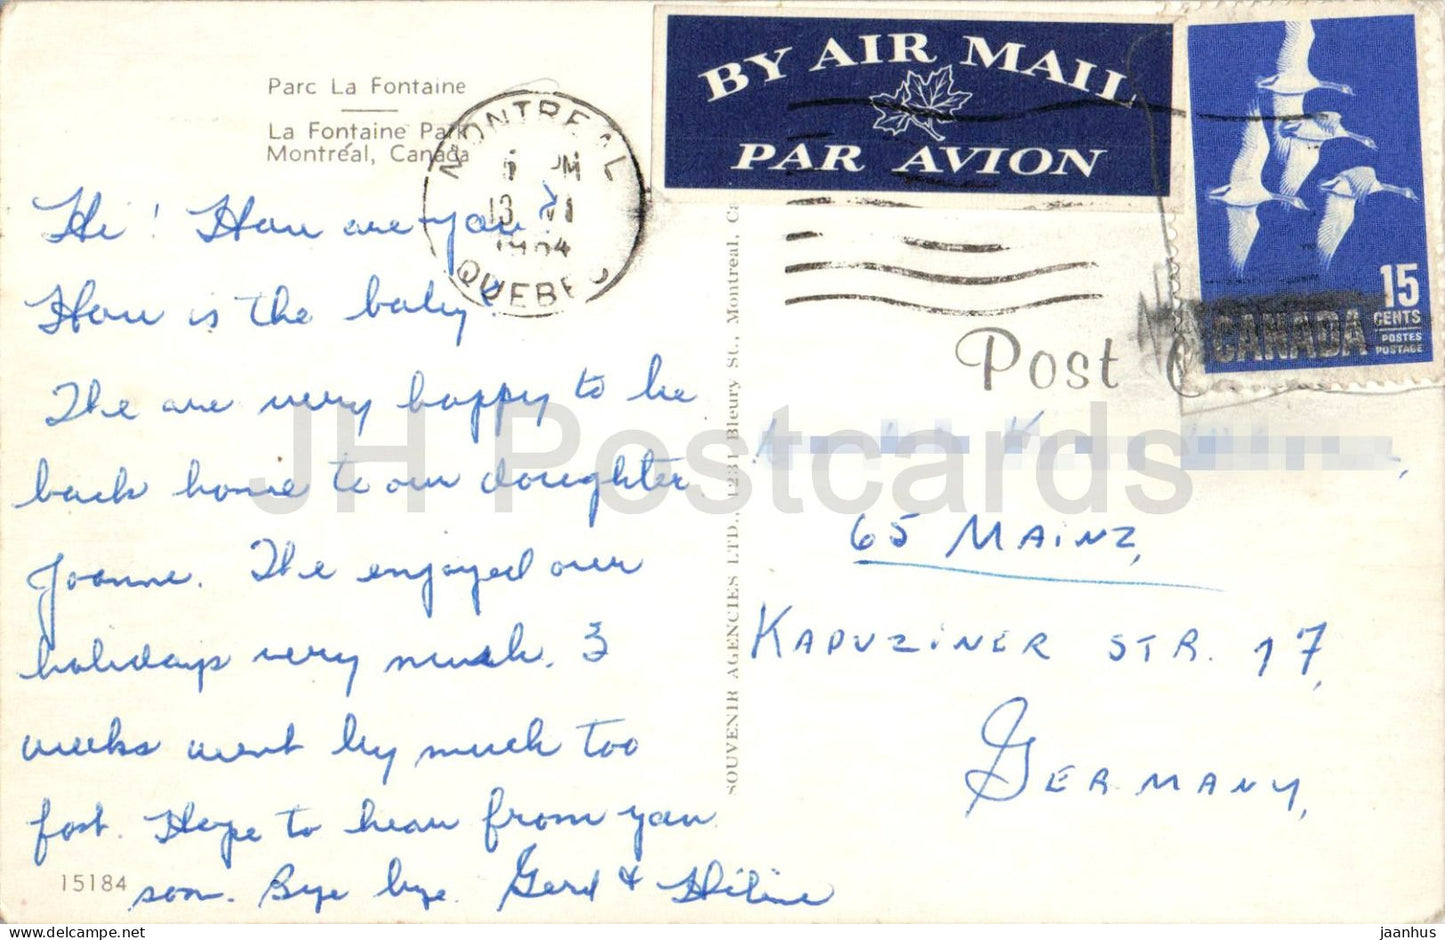 Parc La Fontaine
La Fontaine Park
Montréal, Canada
BY AIR MAIL
PAR AVION
MONTREAL
PM
13 VI
QUEBEC
15
CENTS
POSTES
POSTAGE
CANADA
Post
Hi! How are you?
How is the baby?
The are very happy to be
back home to our doughter
Joanne. The enjoyed our
holidays very much. 3
weeks went by much too
fast. Hope to hear from you
soon. Bye bye. Gerd &
15184
SOUVENIR AGENCIES LTD., 1231 Bleury St., Montreal, Ca
65 MAINZ,
KAPUZINER STR. 17,
GERMANY,
JH Postcards
jaanhus